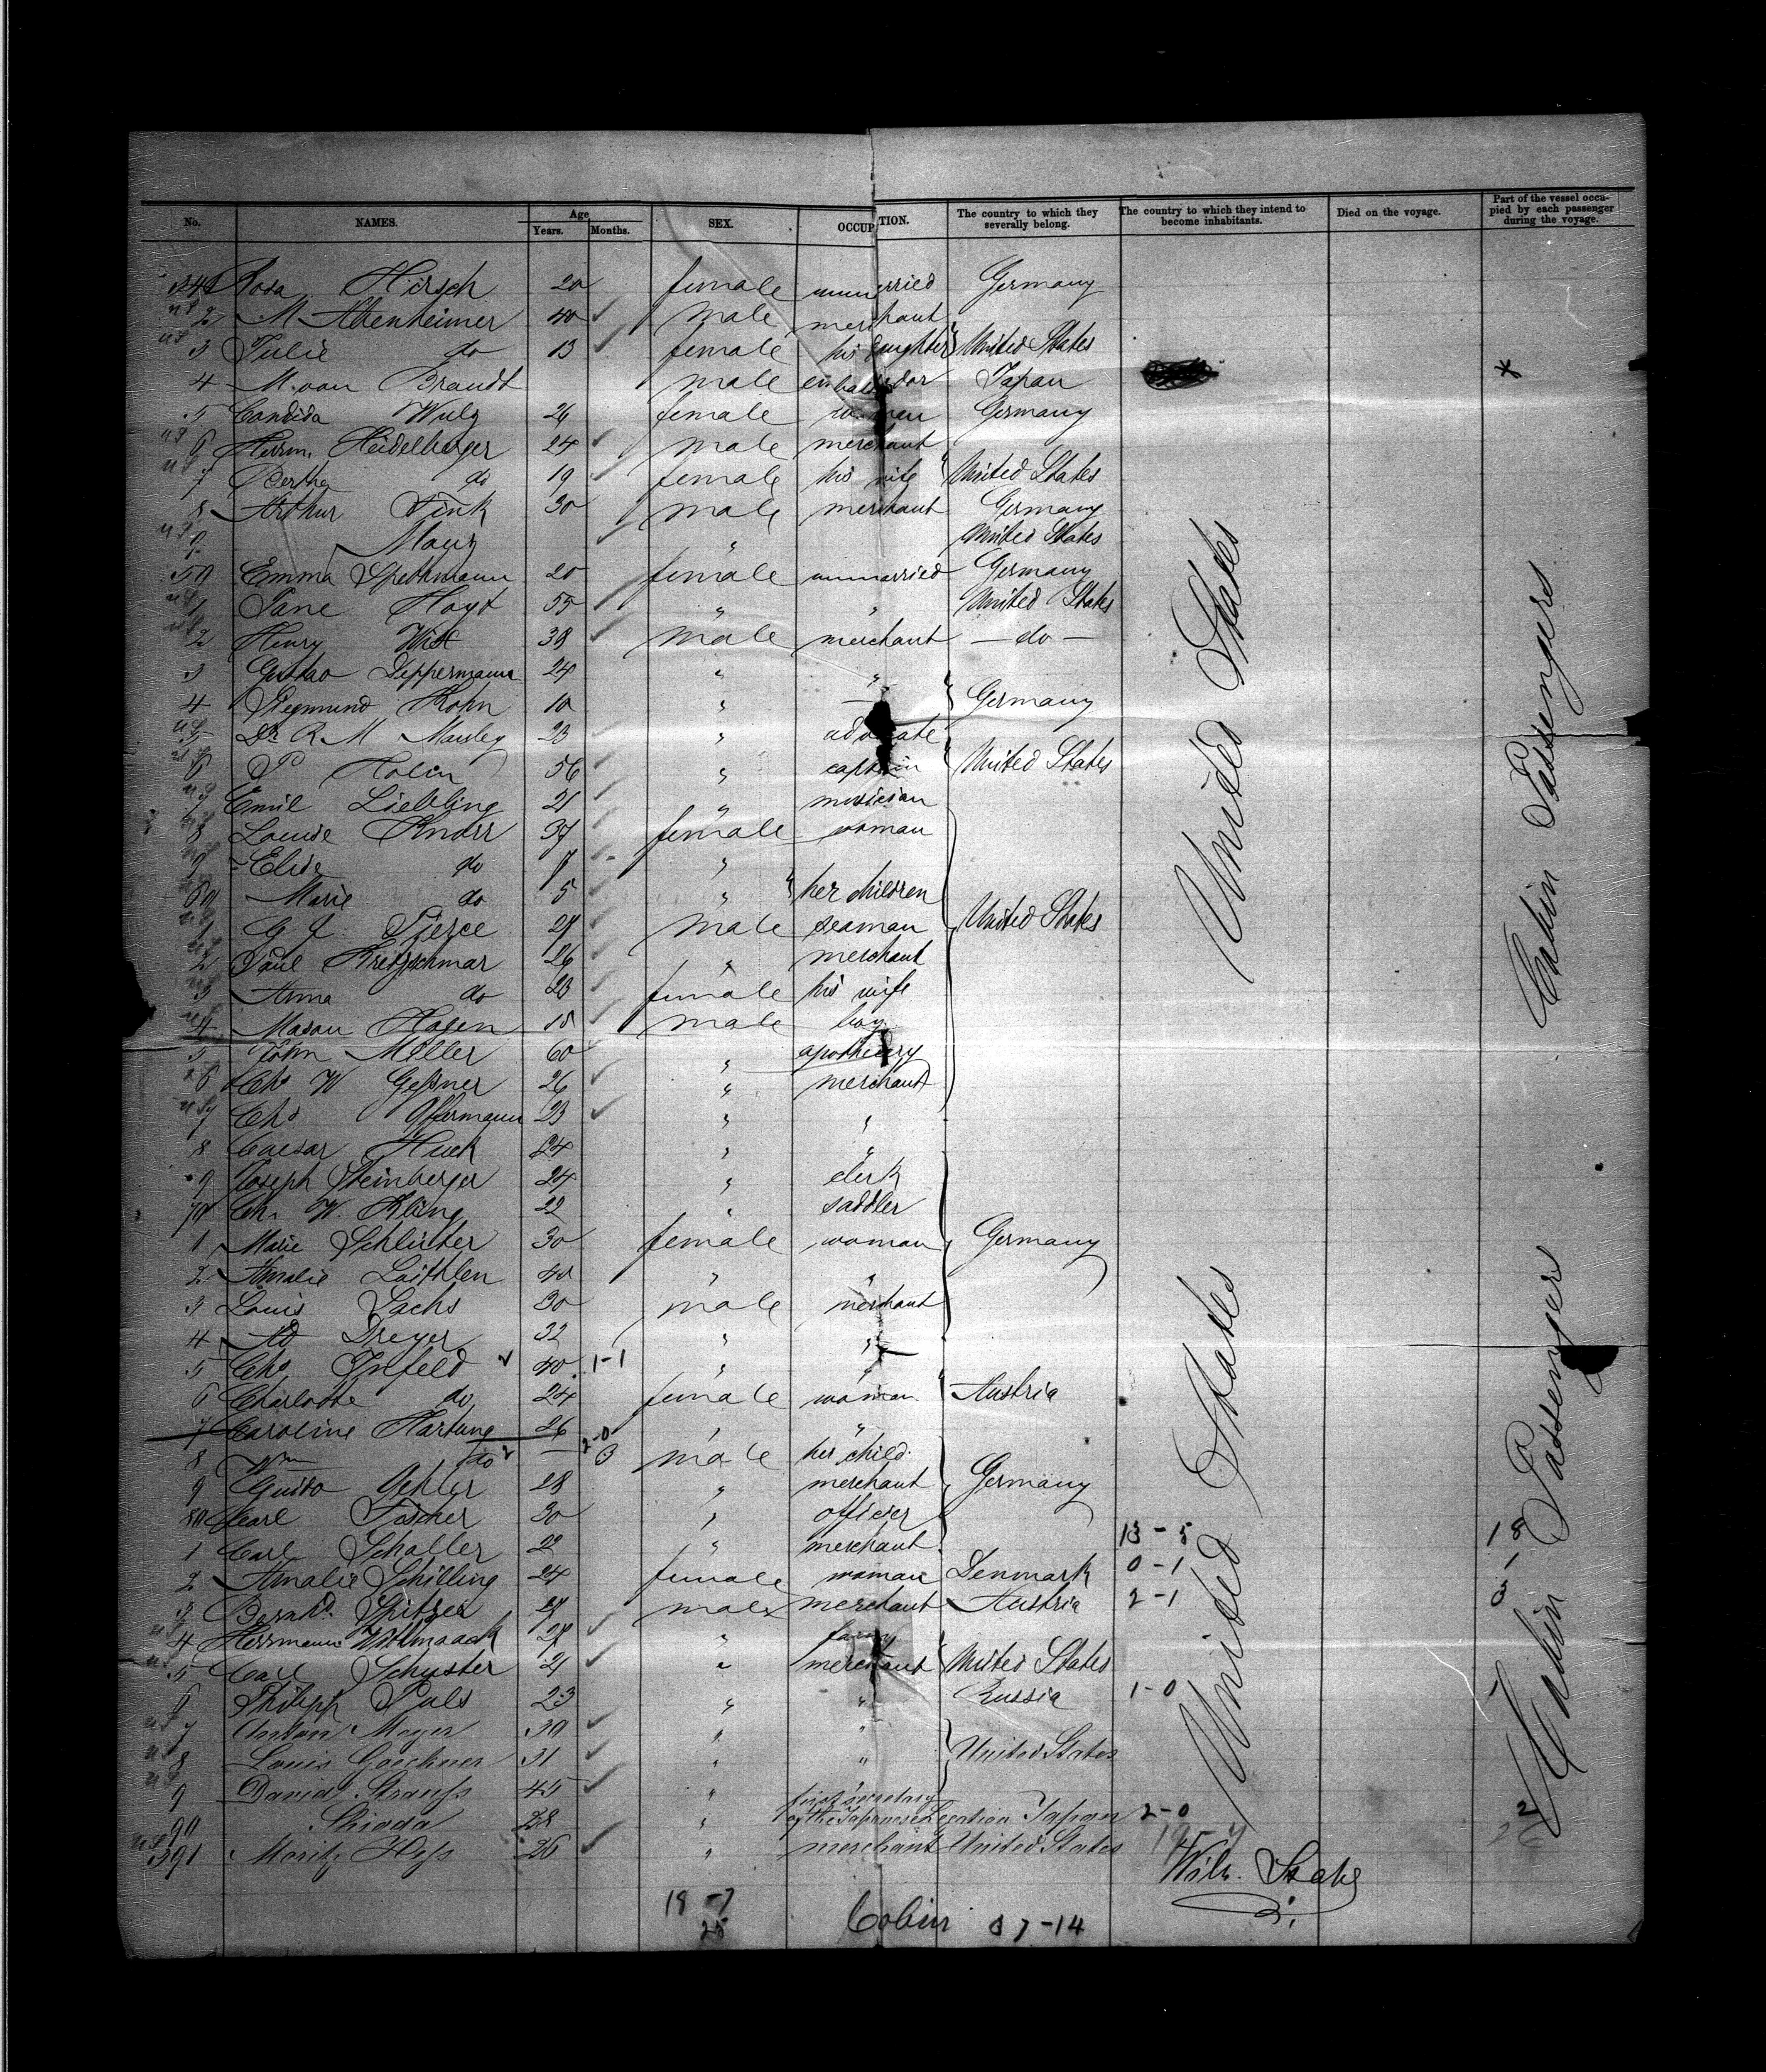 No. NAMES. Age Years. Months. SEX. OCCUPATION. The country to which they severally belong. The country to which they intend to become inhabitants. Died on the voyage. Part of the vessel occupied by each passenger during the voyage.
Rosa Hirsch 20 female unmarried Germany
2 M. Abenheimer 40 male merchant
3 Julie do 13 female his daughter United States
4 M. van Brandt male Japan
5 Candida 26 female woman Germany
6 Herm. Heidelberger 24 male merchant
7 Bertha do 19 female his wife United States
8 Arthur Fink 30 male merchant Germany
9 " United States
50 Emma Spethmann 20 female unmarried Germany
1 Jane Hoyt 55 " " United States
2 Henry Witt 38 male merchant — do —
3 Gustav Deppermann 24 " "
4 Siegmund Kohn 10 " — Germany
5 Dr. R M 23 " advocate
6 P 56 " captain United States
7 Emil Liebling 21 " musician
8 Louise Knorr 37 female woman
9 Elise do 7 "
60 Marie do 5 " her children
1 G J. Pierce 27 male seaman United States
2 Paul Kretzschmar 26 " merchant
3 Anna do 23 female his wife
4 Mason Hagen male boy
5 John Miller 60 " apothecary
6 Chs W Geßner 26 " merchant
7 Chs Offermann 23 " "
8 Caesar Huck 24 " "
9 Joseph Steinberger 24 " clerk
70 Chr. W. Kling 22 " saddler
1 Marie Schlüther 30 female woman Germany
2 Amalie 40 " "
3 Louis Sachs 30 male merchant
4 Ad Dreyer 32 " "
5 Chs Infeld 40 1-1 " "
6 Charlotte do 24 female woman Austria
7 Caroline Hartung 26 " "
8 Wm do — 3 male her child 2-0
9 Guido Oehler 28 " merchant Germany
80 Carl Fischer 30 " officier
1 Carl Schaller 22 " merchant 13-5 18
2 Amalie Schilling 24 female woman Denmark 0-1 1
3 Bernhd. Spitzer 27 male merchant Austria 2-1 3
4 Herrmann 27 "
5 Carl Schuster 21 " merchant United States
6 Philipp Puls 23 " " Russia 1-0 1
7 Anton Meyer 30 " "
8 Louis Goechner 31 " " United States
9 David Strauss 45 " "
90 Shioda 28 " first secretary of the Japanese Legation Japan 2-0 2
391 Moritz Hess 26 " merchant United States
United States
United States
Cabin Passengers
Cabin Passengers
19-7
26
Wilh.
18-7
25
Cabin 37-14